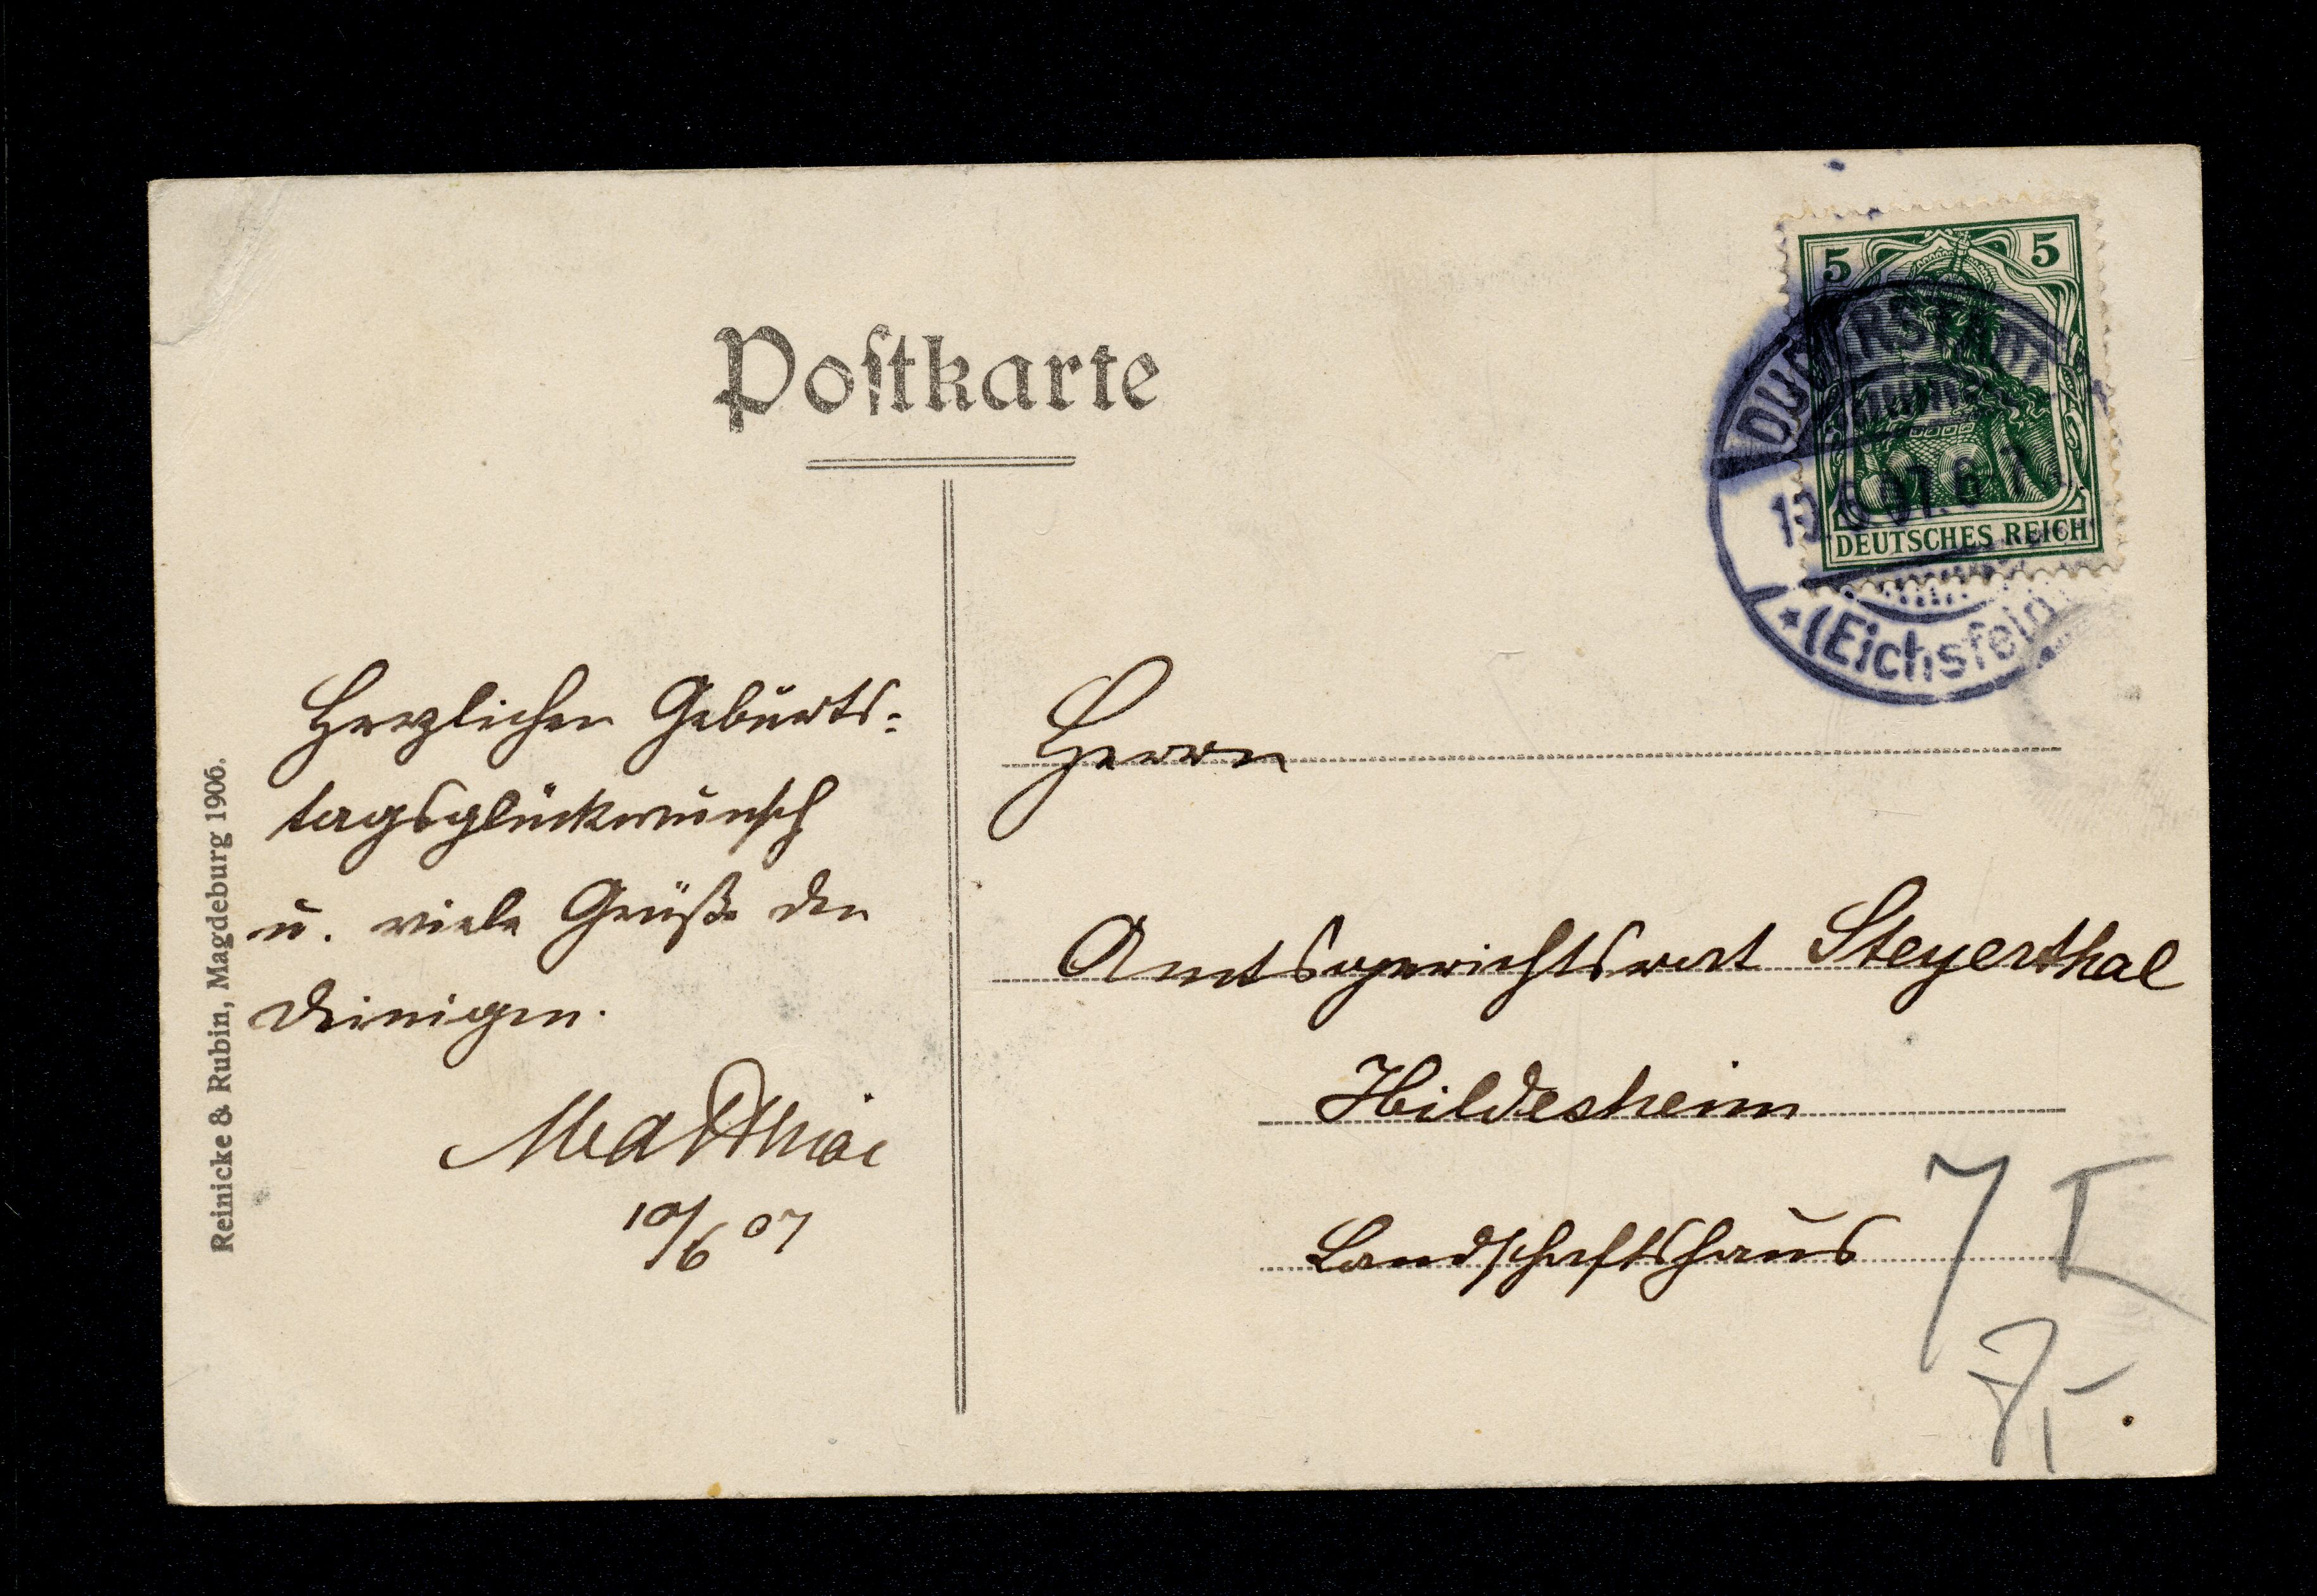 Postkarte
5 5
DUDERSTADT
10.6.07. 6-7
DEUTSCHES REICH
* (Eichsfeld)
Herzlichen Geburts-
tagsglückwunsch
u. viele Grüße den
Deinigen.
Matthiae
10/6 07
Herrn
Amtsgerichtsrat Steyerthal
Hildesheim
Landschaftshaus
7 I
7,-.
Reinicke & Rubin, Magdeburg 1906.